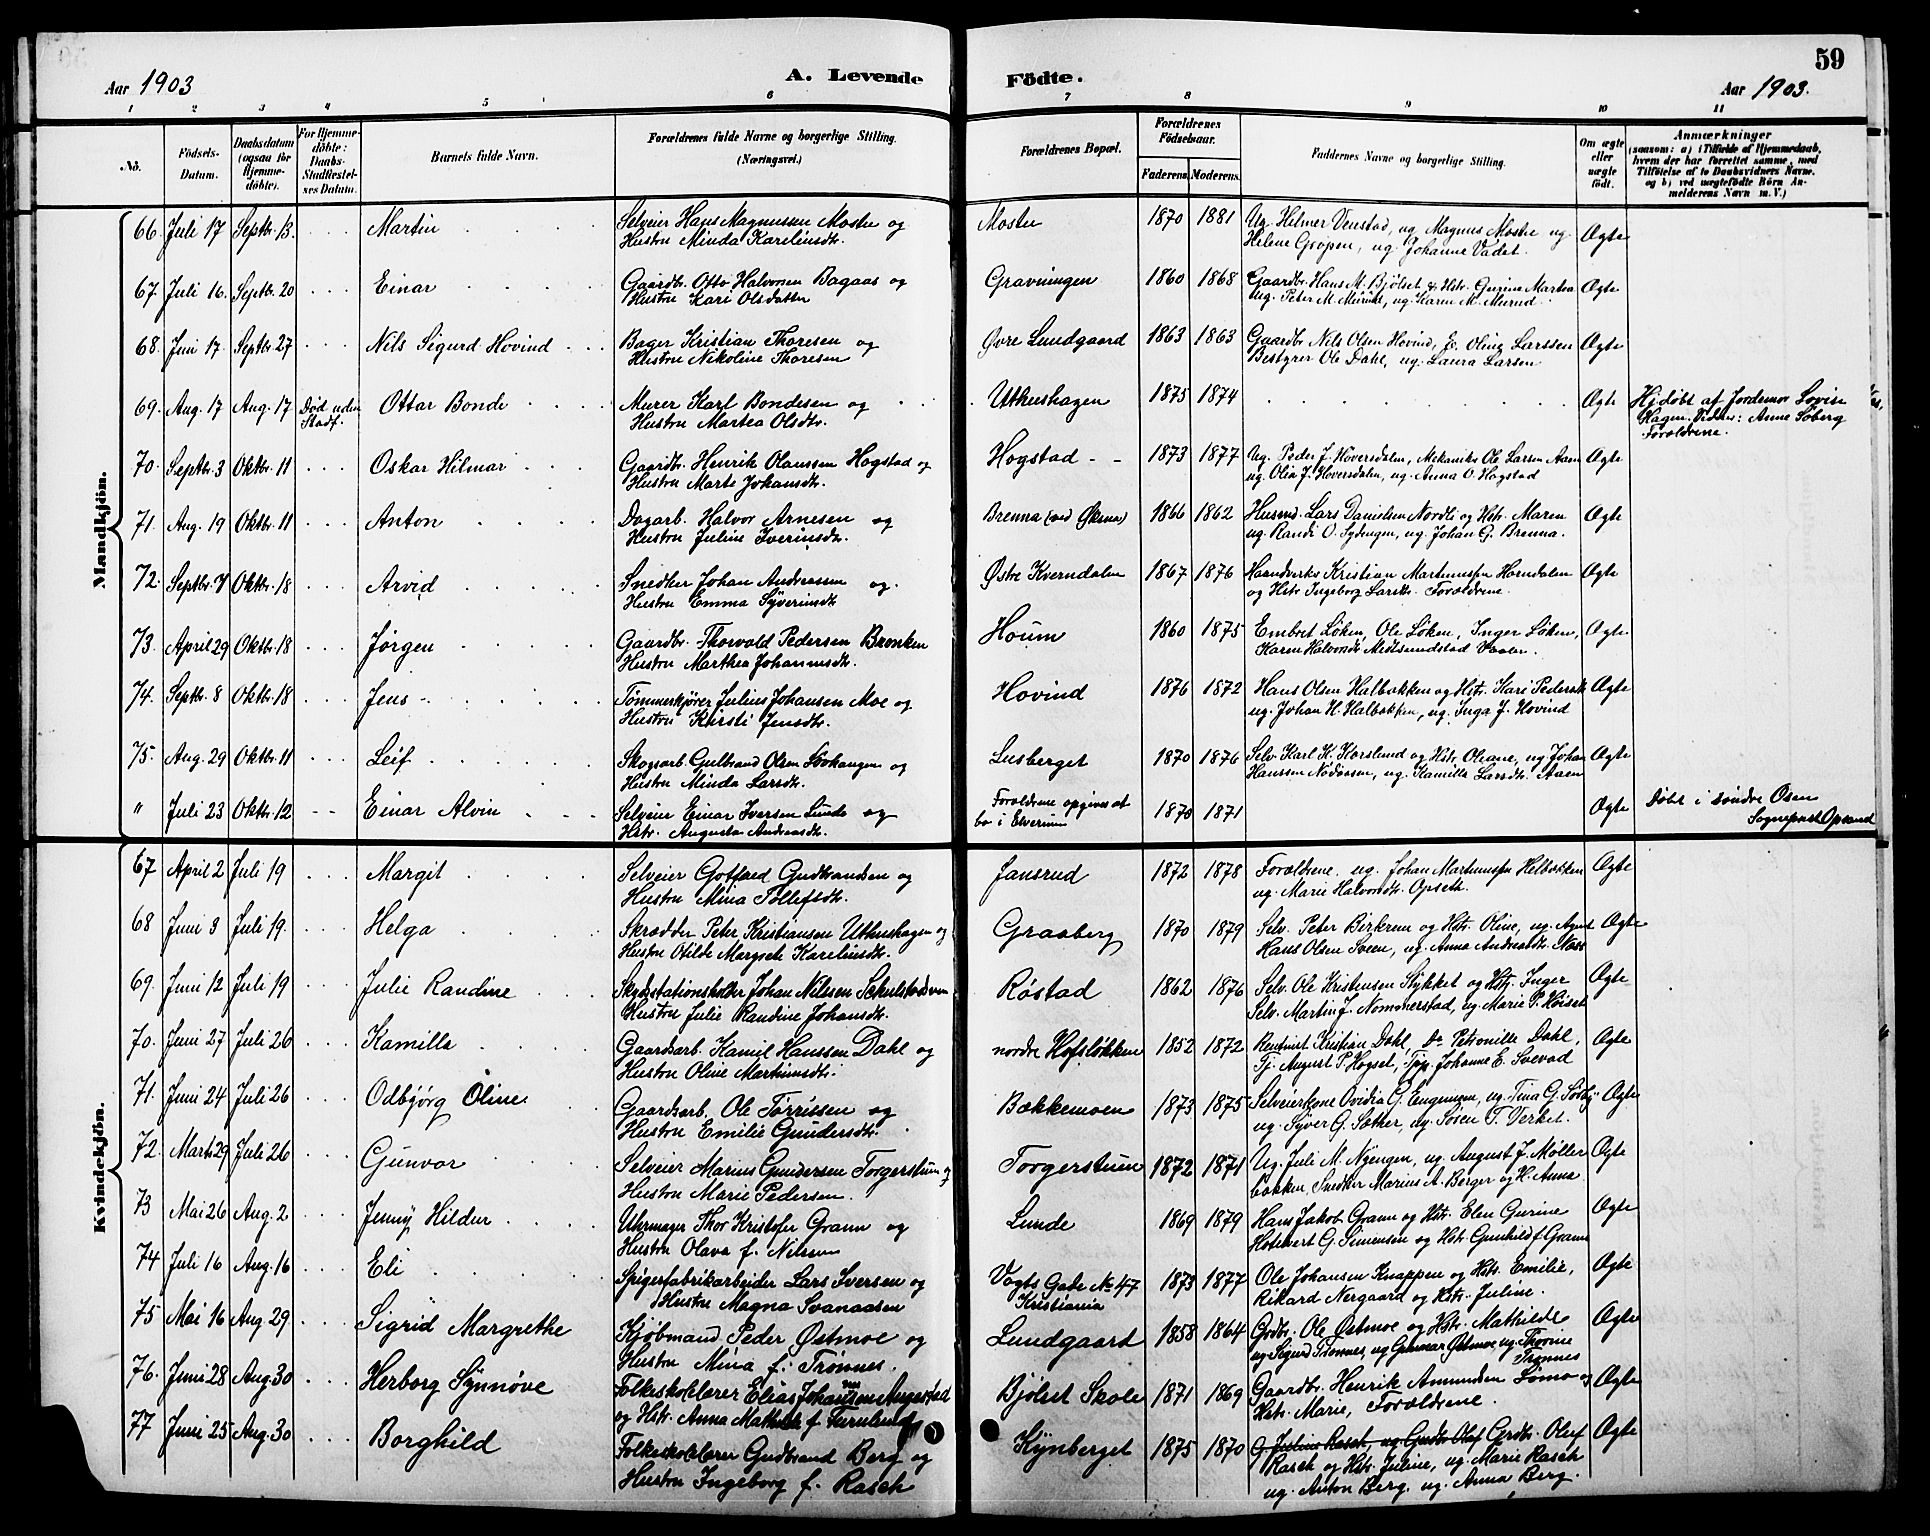 Aar 1903
A. Levende
Födte.
59
Aar 1903.
1 2 3 4 5 6 7 8 9 10 11
No.
Födsels-
Datum.
Daabsdatum
(ogsaa for
Hjemme-
döbte).
For Hjemme-
döbte:
Daabs-
Stadfæstel-
ses Datum.
Barnets fulde Navn.
Forældrenes fulde Navne og borgerlige Stilling.
(Næringsvei.)
Forældrenes Bopæl.
Forældrenes
Födselsaar.
Faderens. Moderens.
Faddernes Navne og borgerlige Stilling.
Om ægte
eller
uægte
født.
Anmærkninger
(saasom: a) i Tilfælde af Hjemmedaab,
hvem der har forrettet samme, med
Tilföielse af to Daabsvidners Navne,
og b) ved uægtefödte Börn An-
melderens Navn m. V.)
Mandkjön.
66. Juli 17 Septbr. 13. Martin Selveier Hans Magnussen Mostu og Mostu 1870 1881 Ug. Helmer Venstad, ug. Magnus Mostre ug.
Hustru Minda Karelinsdtr. Helene Gropen, ug. Johanne Vadet. Ægte
67. Juli 16. Septbr. 20 Einar Gaardbr. Otto Halvorsen Bagaas og Gravningen 1860 1868 Gaardbr. Hans M. Bjölset & Hstr. Gurine Martea Ægte
Hustru Kari Olsdatter ug. Peter M. ug. Karen M.
68. Juni 17. Septbr. 27 Nils Sigurd Hovind Bager Kristian Thoresen og Øvre Lundgaard 1863 1863 Gaardbr. Nils Olsen Hovind, Oline Larssen Ægte
Hustru Nikoline Thoresen Bestyrer Ole Dahl, ug. Laura Larsen
69. Aug. 17 Aug. 17 Død uden Ottar Bonde Murer Karl Bondesen og Uthushagen 1875 1874 Ægte Hjdøbt af Jordemor Lovise
Stadf. Hustru Martea Olsdtr. Hagen. Vidner: Anne Søberg
Forældrene.
70. Septbr. 3 Oktbr. 11 Oskar Hilmar Gaardbr. Henrik Olaussen Hogstad og Hogstad 1873 1877 Ug. Peder J. Hoversdalen, Mekaniker Ole Larsen Aaen Ægte
Hustru Marte Johansdtr. ug. Olia J. Hoversdalen, ug. Anna O. Hogstad
71. Aug. 19 Oktbr. 11 Anton Dagarb. Halvor Arnesen og Brenna (ved Øksna) 1866 1862 Husmd. Lars Danielsen Nordli og Hstr. Maren Ægte
Hustru Juline Iverinsdtr. ug. Randi O. Sydengen, ug. Johan G. Brenna.
72. Septbr. 7 Oktbr. 18 Arvid Snedker Johan Andreassen og Østre Kverndalen 1867 1876 Haandverks Kristian Martinussen Horndalen Ægte
Hustru Emma Syverinsdtr. og Hstr. Ingeborg Larsdtr. Forældrene.
73. April 29 Oktbr. 18 Jørgen Gaardbr. Thorvald Pedersen Bronken Houm 1860 1875 Embret Løken, Ole Løken, Inger Løken, Ægte
Hustru Marthea Johannesdtr. Karen Halvorsdtr. Medtsundstad Vaaler.
74. Septbr. 8 Oktbr. 18 Jens Tømmerkjører Julius Johansen Moe og Hovind 1876 1872 Hans Olsen Halbakken og Hstr. Kari Pedersdtr Ægte
Hustru Kirsti Jensdtr. ug. Johan H. Halbakken, ug. Inga J. Hovind
75. Aug. 29 Oktbr. 11 Leif Skogsarb. Gulbrand Olsen og Lusberget 1870 1876 Selv. Karl K. Korslund og Hstr. Oleane, ug. Johan Ægte
Hustru Minda Larsdtr. Hanssen Nodaasen, ug. Kamilla Larsdtr. Aaen
" Juli 23 Oktbr. 12 Einar Alvin Selveier Einar Iversen Lunde og Forældrene opgives at 1870 1871 Ægte Døbt i søndre Osen
Hstr. Augusta Andreasdtr. bo i Elverum Sogneprest Opsand
Kvindekjön.
67 April 2 Juli 19 Margit Selveier Gotfred Gudbrandsen og Jansrud 1872 1878 Forældrene. ug. Johan Martinussen Helbakken Ægte
Hustru Mina Tollefsdtr. ug. Marie Halvorsdtr. Opseth.
68 Juni 3 Juli 19. Helga Skrædder Peter Kristiansen Uthushagen og Graaberg 1870 1879 Selv. Peter Birkrem og Hstr. Oline, ug. Agent Ægte
Hustru Otilde Margrete Karelinsdtr. Hans Olsen Sveen, ug. Anna Andreasdtr. Næss
69. Juni 12 Juli 19 Julie Randine Skydsstationsholder Johan Nilssen Skulstadsveen Røstad 1862 1876 Selv. Ole Kristensen Stykket og Hstr. Inger Ægte
Hustru Julie Randine Johansdtr. Selv. Martin J. Nommerstad, ug. Marie P. Høiset
70. Juni 27 Juli 26 Kamilla Gaardsarb. Kamil Hanssen Dahl og nordre Hofsløkken 1852 1872 Rentenist Kristian Dahl, Do Petronille Dahl, Ægte
Hustru Oline Martinusdtr. Tj. August P. Hogset, Tjp. Johanne E. Svevad
71. Juni 24 Juli 26 Odbjörg Oline Gaardsarb. Ole Tørrissen og Bækkemoen 1873 1875 Selveierkone Ovidia G. Engemoen, ug. Tina G. Ægte
Hustru Emilie Gundersdtr. ug. Syver G. Sæther, ug. Søren T. Verket.
72. Marts 29 Juli 26 Gunvor Selveier Marius Gundersen Torgerstuen og Torgerstuen 1872 1871 Ug. Juli M. Nyengen, ug. August J. Møller Ægte
Hustru Marie Pedersen. bakken, Snedker Marius A. Berger og H. Anna
73 Mai 26 Aug. 2 Jenny Hildur Uhrmager Thor Kristofer Grann og Lunde 1869 1879 Hans Jakob Grann og Hstr. Elen Gurine Ægte
Hustru Olava f. Nilssen Hotelvert G. Simensen og Hstr. Gunhild f. Grann
74 Juli 16 Aug. 16 Eli Spigerfabrikarbeider Lars Iversen og Vogts Gade No 47 1873 1877 Ole Johansen Knappen og Hstr. Emilie, Ægte
Hustru Magna Svanaasen Kristiania Rikard Nergaard og Hstr. Juline.
75 Mai 16 Aug. 29 Sigrid Margrethe Kjøbmand Peder Østmoe og Lundgaard 1858 1864 Grdbr. Ole Østmoe og Hstr. Mathilde Ægte
Hustru Mina f. Trønnes. ug. Sigurd Trønnes, ug. Gunnar Østmoe, ug. Thorine
Trønnes
76. Juni 28 Aug. 30 Herborg Synnøve Folkeskolelærer Elias Johannessen Angerstad Bjølset Skole 1871 1869 Gaardbr. Henrik Amundsen Fomo og Ægte
og Hstr. Anna Mathilde f. Furulund Hstr. Marie, Forældrene.
77 Juni 25 Aug. 30 Borghild Folkeskolelærer Gudbrand Berg og Kynberget 1875 1870 G. Julius Rasch, ug. Gudbr. Olaf Grdbr. Oluf Ægte
Hustru Ingeborg f. Rasch Rasch og Hstr. Juline, ug. Marie Rasch
ug. Anton Berg, ug. Anna Berg.